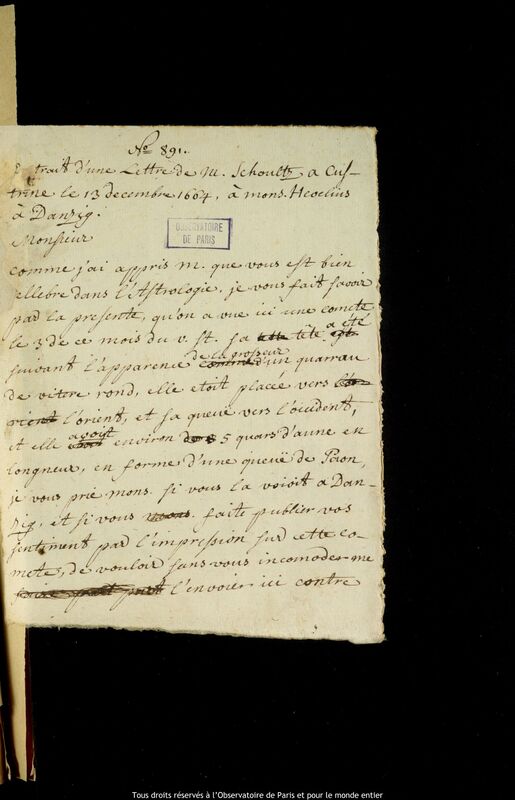 No 891.
Extrait d'une Lettre de M. Schoultz a Cus-
trine le 13 decembre 1664, à mons. Hevelius
à Danzig.
OBSERVATOIRE
DE PARIS
Monsieur
comme j'ai appris m. que vous est bien
cellebre dans l'Astrologie, je vous fait savoir
par la presente, qu'on a vue ici une comete
le 3 de ce mois du v. st. sa tete a été
suivant l'apparence de la grosseur d'un quarrau
de vitere rond, elle etoit placée vers
l'orient, et sa queuë vers l'occident,
et elle avoit environ 5 quars d'aune en
longueur, en forme d'une queuë de Paon,
je vous prie mons. si vous la voioit a Dan-
zig, et si vous faite publier vos
sentiment par l'impression sur cette co-
mete, de vouloir sans vous incomoder me
l'envoier ici contre
Tous droits réservés à l'Observatoire de Paris et pour le monde entier